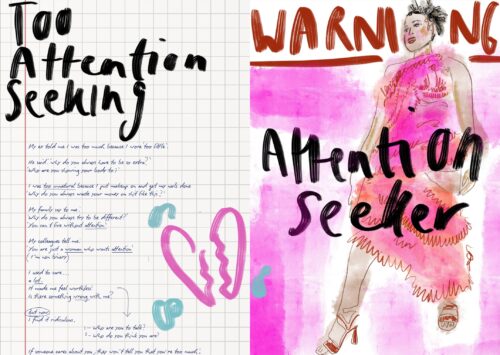 Too
Attention
Seeking
My ex told me I was too much, because I wore too little.
He said 'why do you always have to be so extra?'
Who are you showing your body to?
I was too unnatural because I put makeup on and get my nails done
Why do you always waste your money on shit like this?
My family say to me
Why do you always try to be different?
You can't live without attention
My colleagues tell me
You are just a woman who wants attention
(I'm non binary)
I used to cure...
a lot
It made me feel worthless
Is there something wrong with me?
But now
I find it ridiculous,
1- Who are you to talk?
2- Who do you think you are?
If someone cares about you, they won't tell you that you're too much,
WARNING
Attention
Seeker